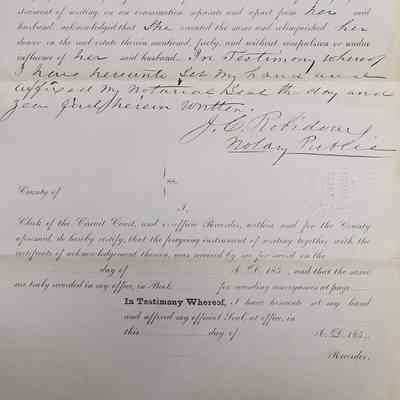 strument of writing, on an examination separate and apart from her said
husband, acknowledged that She executed the same and relinquished her
dower in the real estate therein mentioned, freely, and without compulsion or undue
influence of her said husband. In Testimony whereof
I have hereunto Set my hand and
affixed my Notarial Seal the day and
year first herein written.
J. C. Robidoux
Notary Public
County of
ss.
I,
Clerk of the Circuit Court, and ex-officio Recorder, within and for the County
aforesaid, do hereby certify, that the foregoing instrument of writing together with the
certificate of acknowledgement thereon, was received by me for record on the
day of A. D. 185 , and that the same
was truly recorded in my office, in Book for recording conveyances at page
In Testimony Whereof, I have hereunto set my hand
and affixed my official Seal, at office, in
this day of A. D. 185 .
Recorder.